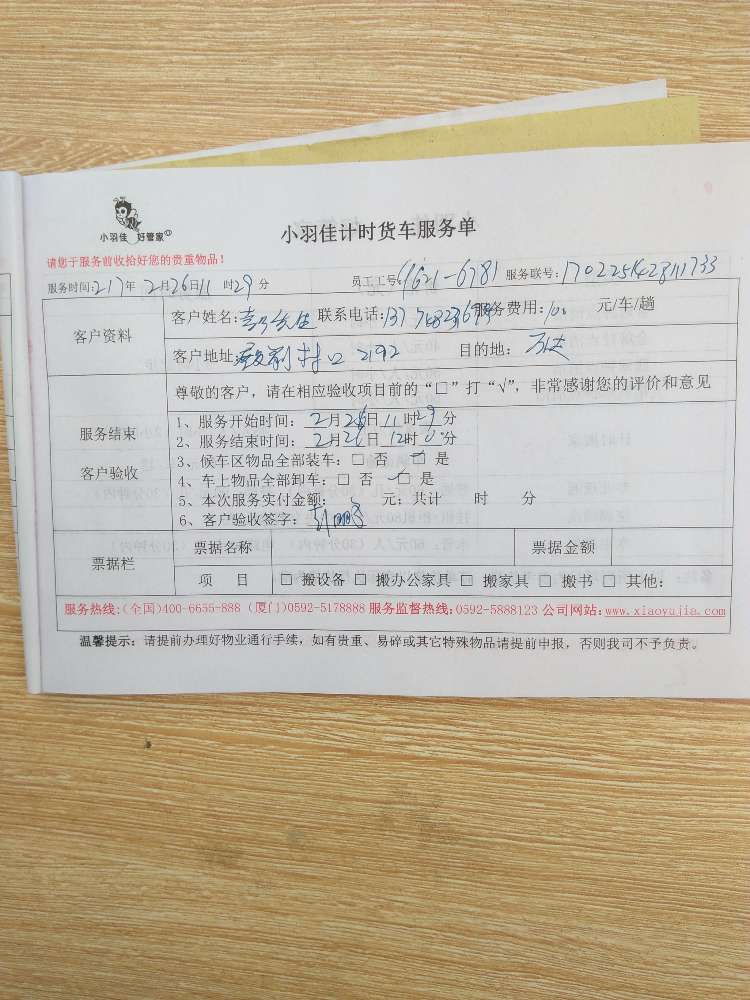 小羽佳 好管家
小羽佳计时货车服务单
请您于服务前收拾好您的贵重物品！
服务时间:217年 2月26日11时29分 员工工号: 9621-6781 服务联号:
客户资料
客户姓名: 先生 联系电话: 服务费用: 元/车/趟
客户地址: 村口2192 目的地:
服务结束
客户验收
尊敬的客户，请在相应验收项目前的“□”打“√”，非常感谢您的评价和意见
1、服务开始时间: 2月26日11时29分
2、服务结束时间: 2月26日12时0分
3、候车区物品全部装车: □ 否 □ 是
4、车上物品全部卸车: □ 否 □ 是
5、本次服务实付金额: 元; 共计 时 分
6、客户验收签字:
票据栏
票据名称 票据金额
项 目 □ 搬设备 □ 搬办公家具 □ 搬家具 □ 搬书 □ 其他:
服务热线:(全国)400-6655-888 (厦门)0592-5178888 服务监督热线:0592-5888123 公司网站:www.xiaoyujia.com
温馨提示: 请提前办理好物业通行手续，如有贵重、易碎或其它特殊物品请提前申报，否则我司不予负责。